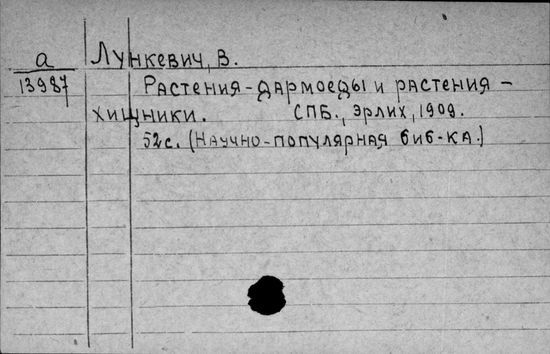 а Лункевич, В.
13987 Растения-дармоеды и растения-
хищники. СПБ., Эрлих, 1909.
52с. (Научно-популярная биб-ка.)